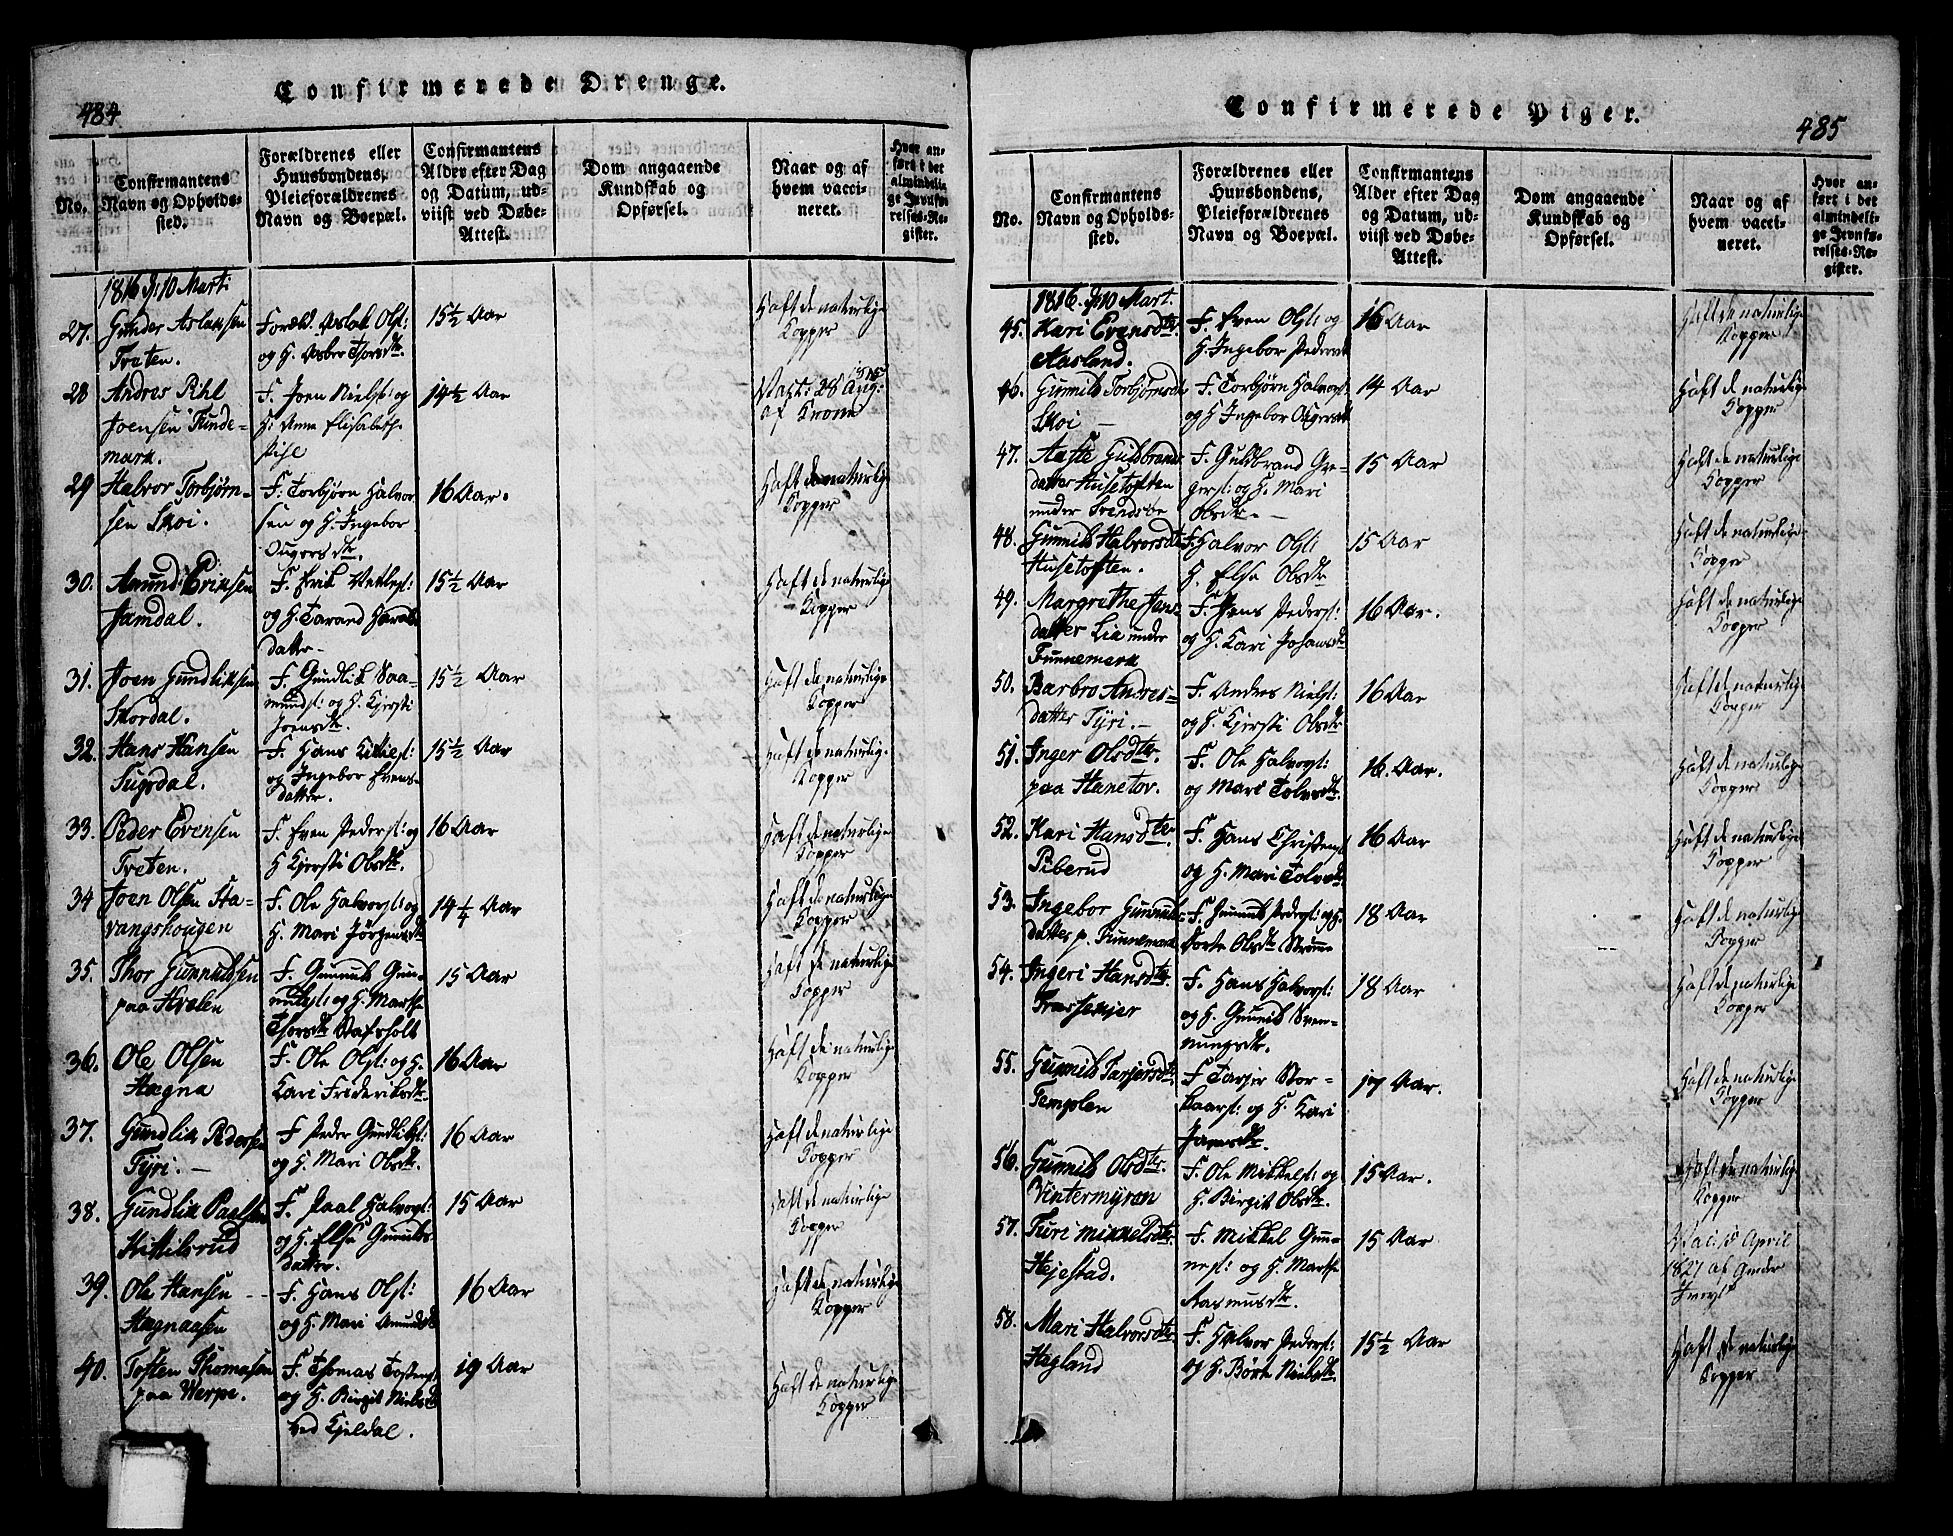 484
Confirmerede Drenge.
No.
Confirmantens
Navn og Opholds-
sted.
Forældrenes eller
Huusbondens,
Pleieforældrenes
Navn og Boepæl.
Confirmantens
Alder efter Dag
og Datum, ud-
viist ved Døbe-
Attest.
Dom angaaende
Kundskab og
Opførsel.
Naar og af
hvem vacci-
neret.
Hvor an-
ført i det
almindeli-
ge Jevnfø-
relses-Re-
gister.
1816 d: 10 Mart:
27. Gunder Aslaksen
Træten.
Foræld. Aslak Ols:
og H. Asber Thorsdtr.
15½ Aar
Haft de naturlige
Kopper
28 Andres Pihl
Joensen Funde-
mark.
F. Joen Niels: og
H: Anne Elisabeth
14½ Aar
28 Aug:
af Krone
29 Halvor Torbjørn-
sen Skoi.
F. Torbjørn Halvor
sen og H. Ingebor
Ougersdtr.
16 Aar.
Haft de naturlige
Kopper
30. Amund Eriksen
Jamdal.
F. Erik Vetles:
og H. Tarand Harals
datter
15½ Aar
Haft de naturlige
Kopper
31. Joen Gundliksen
Skordal.
F. Gundlik Saa-
munds: og H. Kjersti
Joensdtr.
15½ Aar
Haft de naturlige
Kopper
32. Hans Hansen
Sugsdal.
F. Hans
og Ingebor Evens-
datter.
15½ Aar
Haft de naturlig-
Kopper
33. Peder Evensen
Træten.
F. Even Peders: og
H Kjersti Olsdtr.
16 Aar
Haft de naturlige
Kopper
34 Joen Olsen Sta-
vangshougen
F. Ole Halvors: og
H. Mari Jørgensdtr
14¼ Aar
Haft de naturlige
Kopper
35. Thor Gunnuldsen
paa Hvalen
F. Gunnuld Gun-
nulds: og H. Marthe
Thorsdtr Vafsholt
15 Aar
Haft de naturlige
Kopper
36. Ole Olsen
Hægna
F. Ole Ols: og H.
Kari Frideriksdtr.
16 Aar
Haft de naturlige
Kopper
37. Gundlik Peders
Tyri.
F Peder Gundliks:
og H. Mari Olsdtr.
16 Aar
Haft de naturlige
Kopper
38. Gundlik Paalsen
Kittilsrud
F. Paal Halvors:
og H. Else Gunulds
datter.
15 Aar
Haft de naturlige
Kopper
39. Ole Hansen
Hægnaasen
F. Hans Ols:
og H. Mari Amundsdtr
16 Aar
Haft de naturlige
Kopper
40. Tosten Thomasen
paa Werpe.
F. Thomas Tostens:
og H. Birgit Nielsdtr
ved Kjeldal.
19 Aar
Haft de naturlige
Kopper
Confirmerede Piger.
485
No.
Confirmantens
Navn og Opholds-
sted.
Forældrenes eller
Huusbondens,
Pleieforældrenes
Navn og Boepæl.
Confirmantens
Alder efter Dag
og Datum, ud-
viist ved Døbe-
Attest.
Dom angaaende
Kundskab og
Opførsel.
Naar og af
hvem vacci-
neret.
Hvor an-
ført i det
almindeli-
ge Jevnfø-
relses-Re-
gister.
1816. d: 10 Mart.
45. Kari Evensdtr
Aasland.
F. Even Ols: og
H. Ingebor Pedersdtr
16 Aar
Haft de naturlige
Kopper
46. Gunnild Torbjørnsdtr
Skoi
F. Torbjørn Halvors:
og H Ingebor Ougersdtr
14 Aar
Haft de naturlige
Kopper
47. Aaste Guldbrands
datter Husetoften
under Svendsøe
F. Guldbrand Gre-
gers: og H. Mari
Olsdtr.
15 Aar
Haft de naturlige
Kopper
48. Gunnild Halvorsdtr
Husetoften.
F. Halvor Ols:
H. Else Olsdtr
15 Aar
Haft de naturlige
Kopper
49. Margrethe Jens
datter Lia under
Funnemark
F. Jens Peders:
og H. Kari Johansdtr
16 Aar.
Haft de naturlige
Kopper
50. Barbro Andres-
datter Tyri.
F. Andres Niels:
og H. Kjersti Olsdtr
16 Aar
Haft de naturlig
Kopper
51. Inger Olsdtr.
paa Hanetov.
F. Ole Halvors:
og Mari Tolvsdtr.
16. Aar.
Haft de naturlige
Kopper
52. Kari Hansdtr
Piberud
F. Hans Christens:
og H. Mari Tolvsdtr
16 Aar
Haft de naturlige
Kopper
53. Ingebor Gunnulds-
datter p. Funnemark
F. Gunnuld Peders: og H.
Dorte Olsdtr Strøm
18 Aar
Haft de naturlige
Kopper
54. Ingeri Hansdtr.
Frassemjer
F. Hans Halvors:
og H. Gunnild Sven-
nungsdtr.
18 Aar
Haft de naturlige
Kopper
55. Gunnild Tarjersdtr.
Templen
F Tarjer Stor-
kaars: og H. Kari
Jamsdtr.
17 Aar.
Haft de naturlige
Kopper
56. Gunnild Olsdtr.
Vintermyran
F. Ole Mikkels: og
H. Birgit Olsdtr.
15 Aar.
Haft de naturlig
Kopper
57. Turi Mikkelsdtr.
Hejestad.
F. Mikkel Gun-
nes: og H. Marthe
Aasmusdtr.
15 Aar
April
af Gunder
58. Mari Halvorsdtr.
Hagland
F. Halvor Peders:
og H. Børte Nielsdtr.
15½ Aar
Haft de naturlige
Kopper